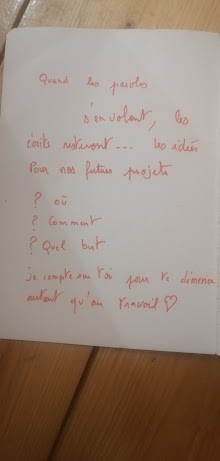 Quand les paroles
s'envolent, les
écrits resteront... les idées
Pour nos futurs projets
? où
? Comment
? Quel but
je compte sur toi pour te dimener
autant qu'au travail ♡